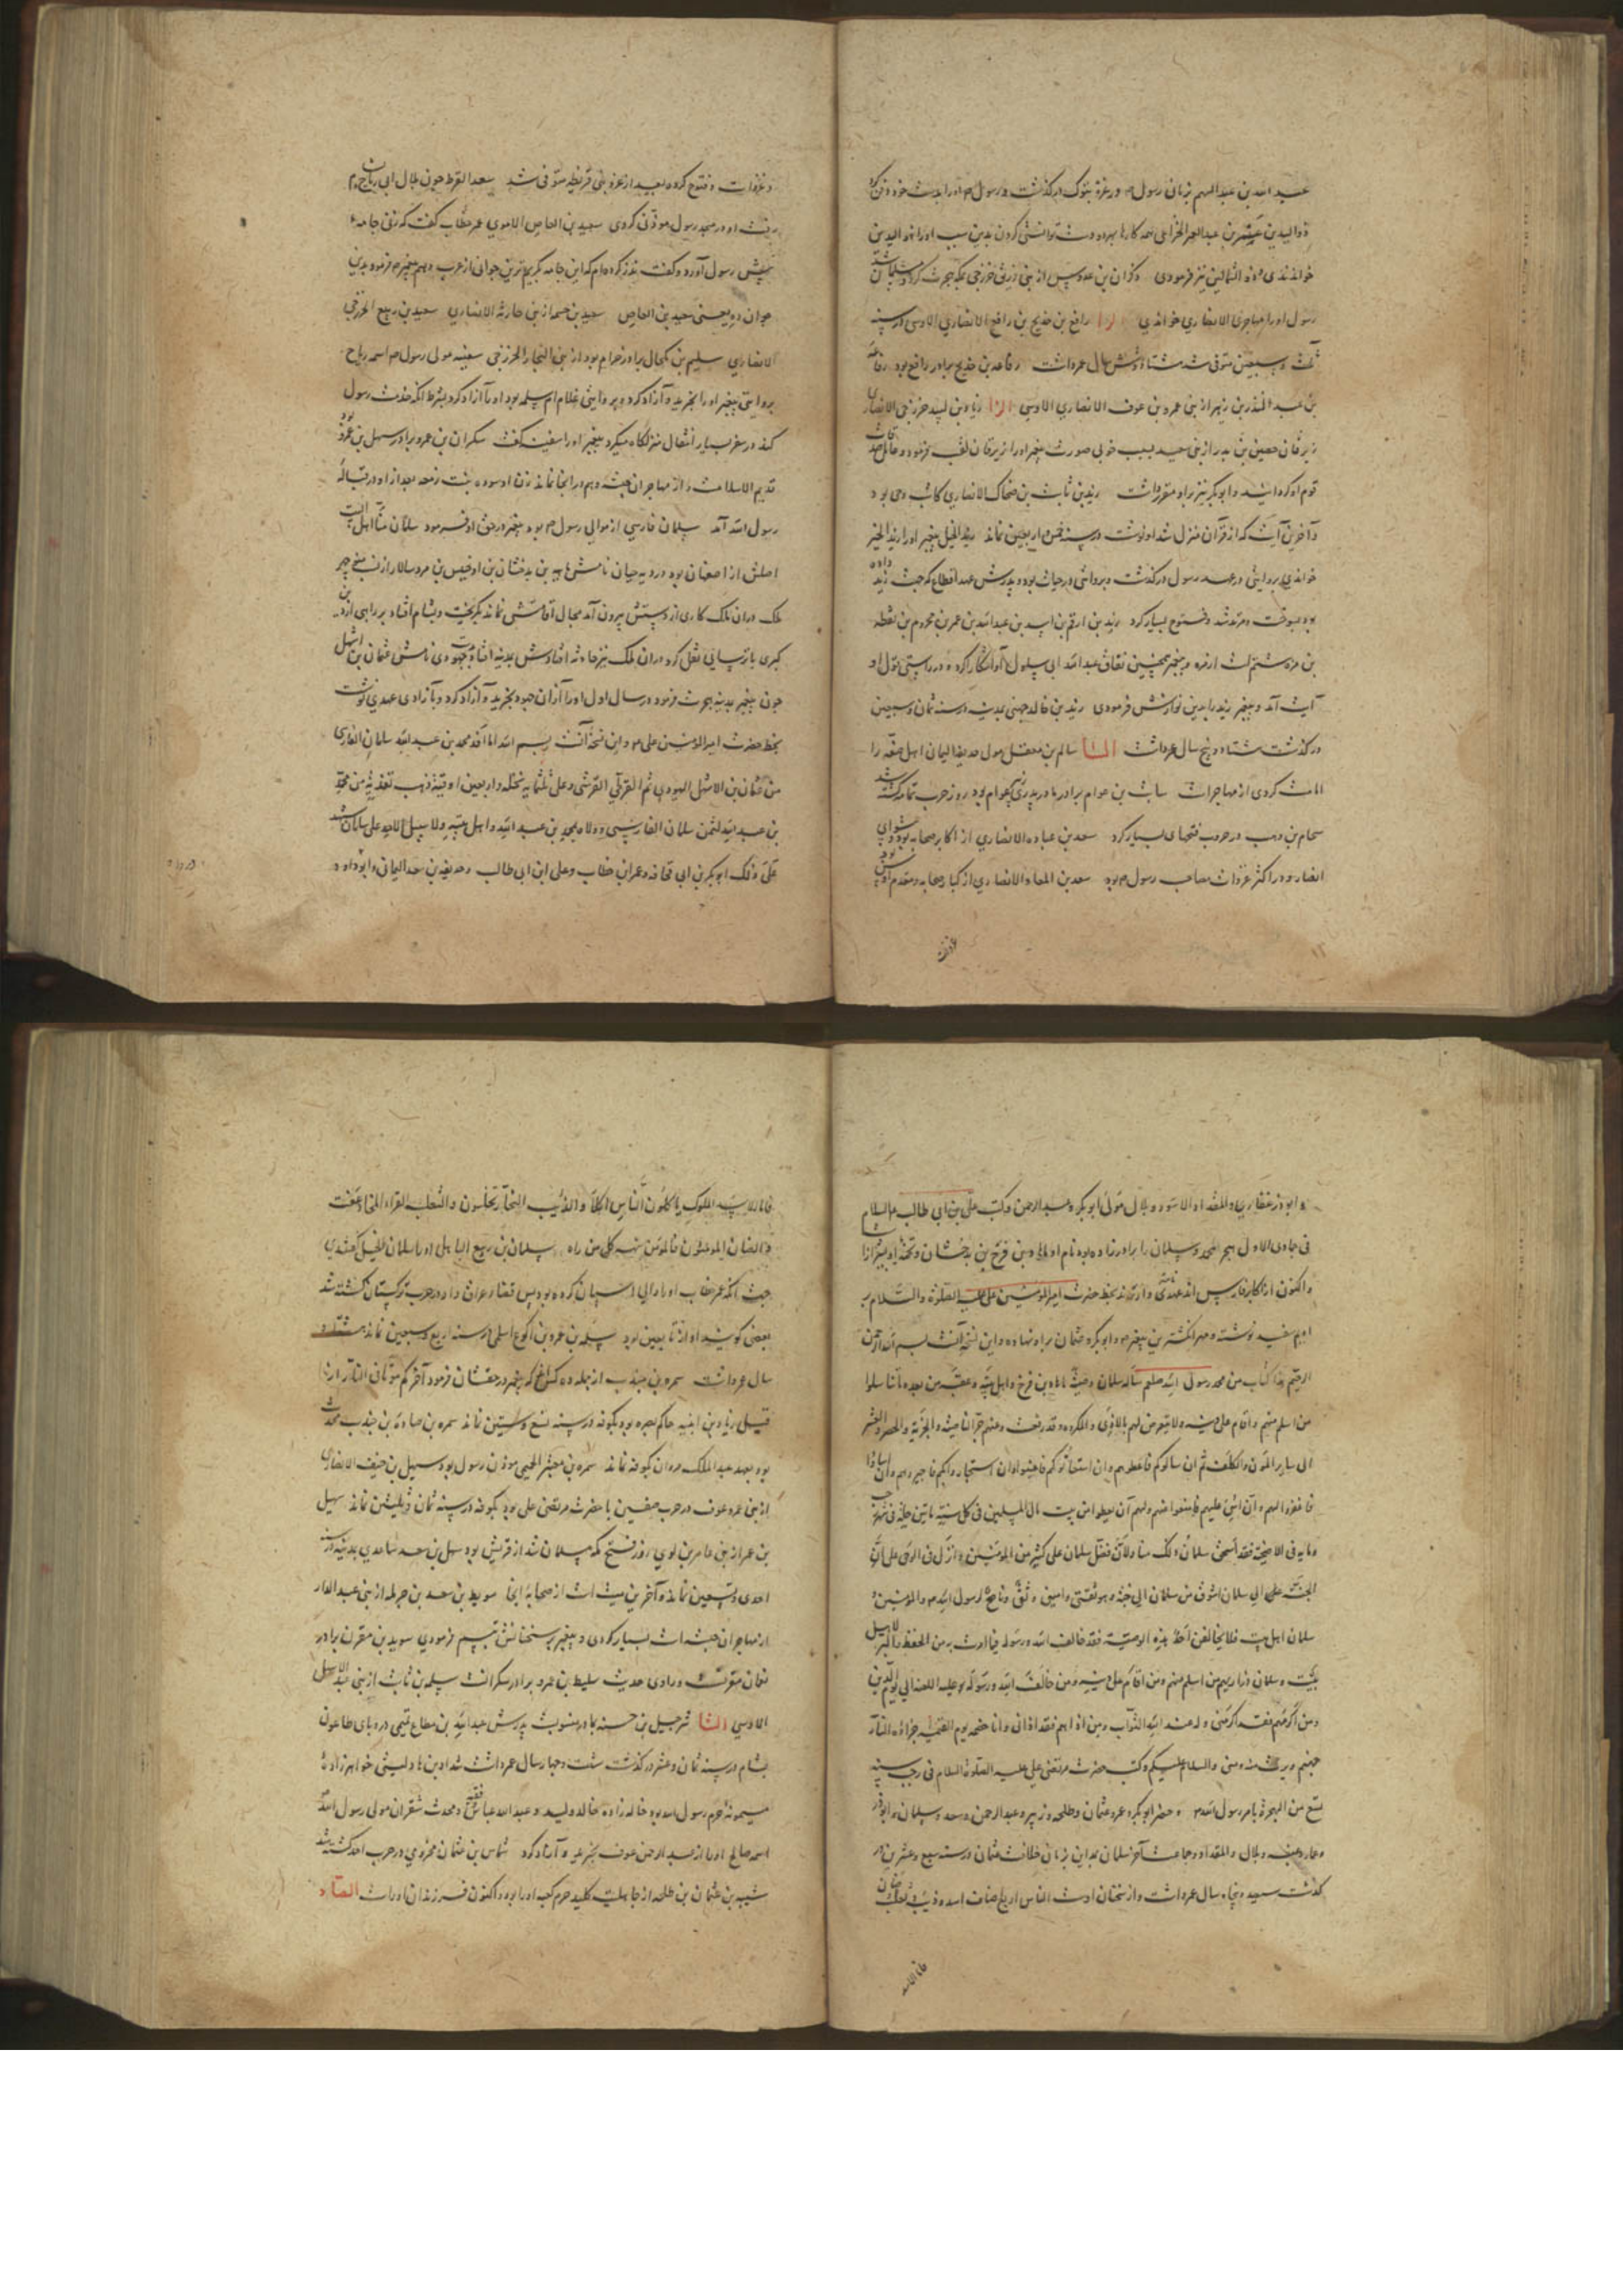 عبد الله بن عبد المهم بزمان رسول ۾ در غزوۀ تبوک درگذشت و رسول ۾ او را بدست خود دفن کرد
ذوالیدین عمیر بن عبد العمر الخزاعی همه کارها بهر دو دست توانستی کردن بدین سبب او را ذو الیدین
خواندندی و ذو الشمالین نیز فرمودی ذکوان بن عبد قیس از بنی زریق خزرجی بمکه هجرت کرد و مسلمان شد
رسول او را مهاجری الانصاری خواندی الرا رافع بن خدیج بن رافع الانصاری الاوسی در سنه
ثلث و سبعین متوفی شد هشتاد و شش سال عمر داشت رفاعه بن خدیج برادر رافع بود رفاعه
بن عبد المنذر بن زنیر از بنی عمرو بن عوف الانصاری الاوسی الزا زیاد بن لبید خزرجی الانصاری
زبرقان حصین بن بدر از بنی سعد بسبب خوبی صورت پیغمبر او را زبرقان لقب فرمود و عامل صدقات
قوم او کردانید و ابوبکر نیز بر او مقرر داشت زید بن ثابت بن ضحاک الانصاری کاتب وحی بود
و آخرین آیت که از قرآن منزل شد او نوشت در سنه خمس و اربعین نماند زید الخیل پیغمبر او را زید الخیر
خواندی بروایتی در عهد رسول درگذشت و بروایتی در حیات بود و پدرش عهد اقطاع که جهت زید داده
بود بسوخت و مرتد نشد و فتوح بسیار کرد زید بن ارقم بن اسید بن عبد الله بن عمر بن محروم بن نقطه
بن مره ششم است از مره و پیغمبر همچنین نفاق عبد الله ابی سلول او آشکارا کرد و در راستی قول او
آیت آمد و پیغمبر زید را بدین نوازش فرمودی زید بن خالد جهنی بمدینه در سنه ثمان و سبعین
درگذشت هشتاد و پنج سال عمر داشت السا سالم بن معقل مولی حذیفه الیمان اهل صفه را
امامت کردی از مهاجرات سائب بن عوام برادر مادر پدری زبیر عوام بود روز حرب یمامه کشته شد
سحام بن وهب در حروب فتحهای بسیار کرد سعد بن عباده الانصاری از اکابر صحابه بود و پیشوای
انصار و در اکثر غزوات مصاحب رسول ۾ بود سعد بن المعاذ الانصاری از کبار صحابه و مقدم اوس بود
و غزوات و فتوح کرده بعد از غزو بنی قریظه متوفی شد سعد القرظ چون بلال ابی رباح ۾
برفت او در مسجد رسول موذنی کردی سعید بن العاص الاموی عمر خطاب گفت که زنی جامۀ
پیش رسول آورد و گفت نذر کرده‌ام که این جامه بکریم‌ترین جوانی از عرب دهم پیغمبر ۾ فرمود بدین
جوان ده یعنی سعید بن العاص سعید بن خیثمه از بنی حارثه الانصاری سعید بن ربیع الخزرجی
الانصاری سلیم بن ملحان برادر حرام بود از بنی النجار الخزرجی سفینه مولی رسول ۾ اسمه رباح
بروایتی پیغمبر او را بخرید و آزاد کرد و بروایتی غلام ام سلمه بود او را آزاد کرد بشرط آنکه خدمت رسول
کند در سفر بسیار انتقال منزلگاه میکرد پیغمبر او را سفینه گفت سکران بن عمرو برادر سهیل بن عمرو بود
قدیم الاسلام است و از مهاجران حبشه و هم در آنجا نماند زن او سوده بنت زمعه بعد از او در قبالۀ
رسول الله آمد سلمان فارسی از موالی رسول ۾ بود پیغمبر در حق او فرمود سلمان منا اهل البیت
اصلش از اصفهان بود
ملک در آن ملک کاری از دستش بیرون آمد مجال اقامتش نماند بگریخت و بشام افتاد بر راهبی از دین
کبری باترسائی نقل کرد در آن ملک نیز حادثه افتادش بمدینه افتاد و جهودی نامش عثمان بن اشهل
چون پیغمبر بمدینه هجرت فرمود در سال اول او را از آن جهود بخرید و آزاد کرد و بآزادی عهدی نوشت
بخط حضرت امیر المؤمنین علی ۾ و این نسخه آنست بسم الله اما افدی محمد بن عبد الله سلمان الفارسی
من عثمان بن الاشهل الیهودی ثم القرظی القرشی و علی ثلثمایه نخله و اربعین اوقیة ذهب
بن عبد الله لثمن سلمان الفارسی و ولاه لمحمد بن عبد الله و اهل بیته و لا سبیل لاحد علی سلمان شهد
علی ذلک ابوبکر بن ابی قحافه و عمر بن خطاب و علی ابن ابی طالب و حذیفه بن سعد الیمانی و ابو ذر
و ابوذر غفاری و المقداد الاسود و بلال مولی ابوبکر و عبد الرحمن و کتب علی بن ابی طالب علیه السلام
فی جمادی الاول مهجر محمد و سلمان را برادرزاده بود نام او ماهاد بن فرخ بن بدخشان و تخمه او بشیراز است
و اکنون از اکابر فارس‌اند عهدی نامه دارند بخط حضرت امیر المؤمنین علی علیه الصلوة و السلام بر
ادیم سفید نوشته و مهر انگشترین پیغمبر ۾ و ابوبکر و عثمان بر او نهاده و این نسخه آنست بسم الله الرحمن
الرحیم هذا کتاب من محمد رسول الله صلعم سأله سلمان وصیة ماهاد بن فرخ و اهل بیته و عقبه من بعده ما تناسلوا
من اسلم منهم و اقام علی دینه
الی سایر المؤن و الکلف ثم ان سالوکم فاعطوهم و ان استغاثوکم فاغیثوا و ان استجاروا بکم فاجیروهم و ان اساؤا
فاغفروا لهم و ان اسئ علیهم فامنعوا عنهم و لهم ان یعطوا من بیت مال المسلمین فی کل سنة مائتین حلة فی شهر رجب
و مایه فی الاضحیة فقد استحق سلمان ذلک منا و لان فضل سلمان علی کثیر من المؤمنین و انزل فی الوحی علی ان
الجنة الی سلمان اشوق من سلمان الی الجنة و هو ثقتی و امین و تقی و ناصح لرسول الله ۾ و المؤمنین و
سلمان اهل بیت فلا یخالفن احد هذه الوصیة فقد خالف الله و رسوله
بیت سلمان و ذراریهم من اسلم منهم و من اقام علی دینه و من خالف الله و رسوله و علیه اللعنة الی یوم الدین
و من اکرمهم فقد اکرمنی و له عند الله الثواب و من اذاهم فقد اذانی و انا خصمه یوم القیمة جزاؤه النار
جهنم و برئت ذمته منی و السلام علیکم و کتب حضرت مرتضی علی علیه الصلوة و السلام فی رجب سنه
تسع من الهجرة بامر رسول الله ۾ و حضر ابوبکر و عمر و عثمان و طلحه و زبیر و عبد الرحمن و سعد و سلمان و ابوذر
و عمار و عیینه و بلال و المقداد و جماعت آخر سلمان بمداین بزمان خلافت عثمان در سنه سبع و عشرین در
گذشت سیصد و پنجاه سال عمر داشت و از سخنان اوست الناس اربع اصناف اسد و ذئب و ثعلب و ضان
فاما الاسد الملوک یاکلون الناس اکلا و الذئب التجار یخلسون و الثعلب القراء المخادعون
و الضان المؤمنون فالمؤمن ینهبه کل من راه سلمان بن ربیع الباهلی او را سلمان الخیل گفتندی
جهت آنکه عمر خطاب او را والی اسپان کرده بود پس قضاء عراق داد و در حرب ترکستان کشته شد
بعضی گویند او از تابعین بود سلمه بن عمرو بن اکوع اسلمی در سنه اربع و سبعین نماند هشتاد و
سال عمر داشت سمره بن جندب از جمله ده کس اغ که پیغمبر در حقشان فرمود آخرکم موتا فی النار از
قبل زیاد بن ابیه حاکم بصره بود بکوفه در سنه تسع و ستین نماند سمره بن جناده بن جندب محدث
بود بعهد عبد الملک مروان بکوفه نماند سمره بن معیر الجمحی موذن رسول بود سهیل بن حنیف الانصاری
از بنی عمرو عوف در حرب صفین با حضرت مرتضی علی بود بکوفه در سنه ثمان و ثلثین نماند سهیل
بن عمر از بنی عامر بن لوی روز فتح مکه مسلمان شد از قریش بود سهل بن سعد ساعدی بمدینه در سنه
احدی و تسعین نماند و آخرین میت است از صحابه آنجا سویط بن سعد بن حرمله از بنی عبد الدار
از مهاجران حبشه است بسیار کردی و پیغمبر بر سخنانش تبسم فرمودی سوید بن مقرن برادر
نعمان مقرنست و راوی حدیث سلیط بن عمرو برادر سکرانست سلمه بن ثابت از بنی عبد الاشهل
الاوسی الشا شرحبیل بن حسنه بمادر منسوبست پدرش عبد الله بن مطاع تمیمی در وبای طاعون
بشام در سنه ثمان و عشر درگذشت شصت و چهار سال عمر داشت شداد بن هاد لیثی خواهرزادۀ
میمونه حرم رسول الله بود خاله زاده خالد ولید و عبد الله عباس فقیه و محدث شقران مولی رسول الله
اسمه صالح او را از عبد الرحمن عوف بخرید و آزاد کرد شماس بن عثمان مخزومی در حرب احد کشته شد
شیبه بن عثمان بن طلحه از جاهلیت کلید حرم کعبه او را بود و اکنون فرزندان او راست الصاد